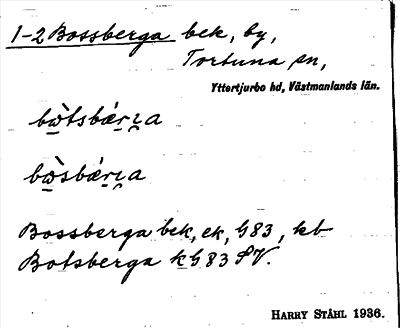 1-2 Bossberga bek, by,
Tortuna sn,
Yttertjurbo hd, Västmanlands län.
bὼtsbær̤ɪ̯a
bὼsbær̤ɪ̯a
Bossberga bek, ek, G83, kb
Botsberga kG83 SV.
HARRY STÅHL 1936.